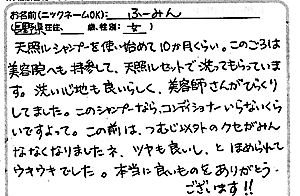 お名前(ニックネームOK): ふーみん
(長野県在住、 歳、性別: 女 )
天照ルシャンプーを使い始めて10か月くらい。このごろは
美容院へも持参して、天照ルセットで洗ってもらっていま
す。洗い心地も良いらしく、美容師さんがびっくり
してました。このシャンプーなら、コンディショナーいらないくら
いですよって。この前は、つむじ以外のクセがみん
ななくなりましたネ、ツヤも良いし、とほめられて
ウキウキでした。本当に良いものをありがとう
ございます!!